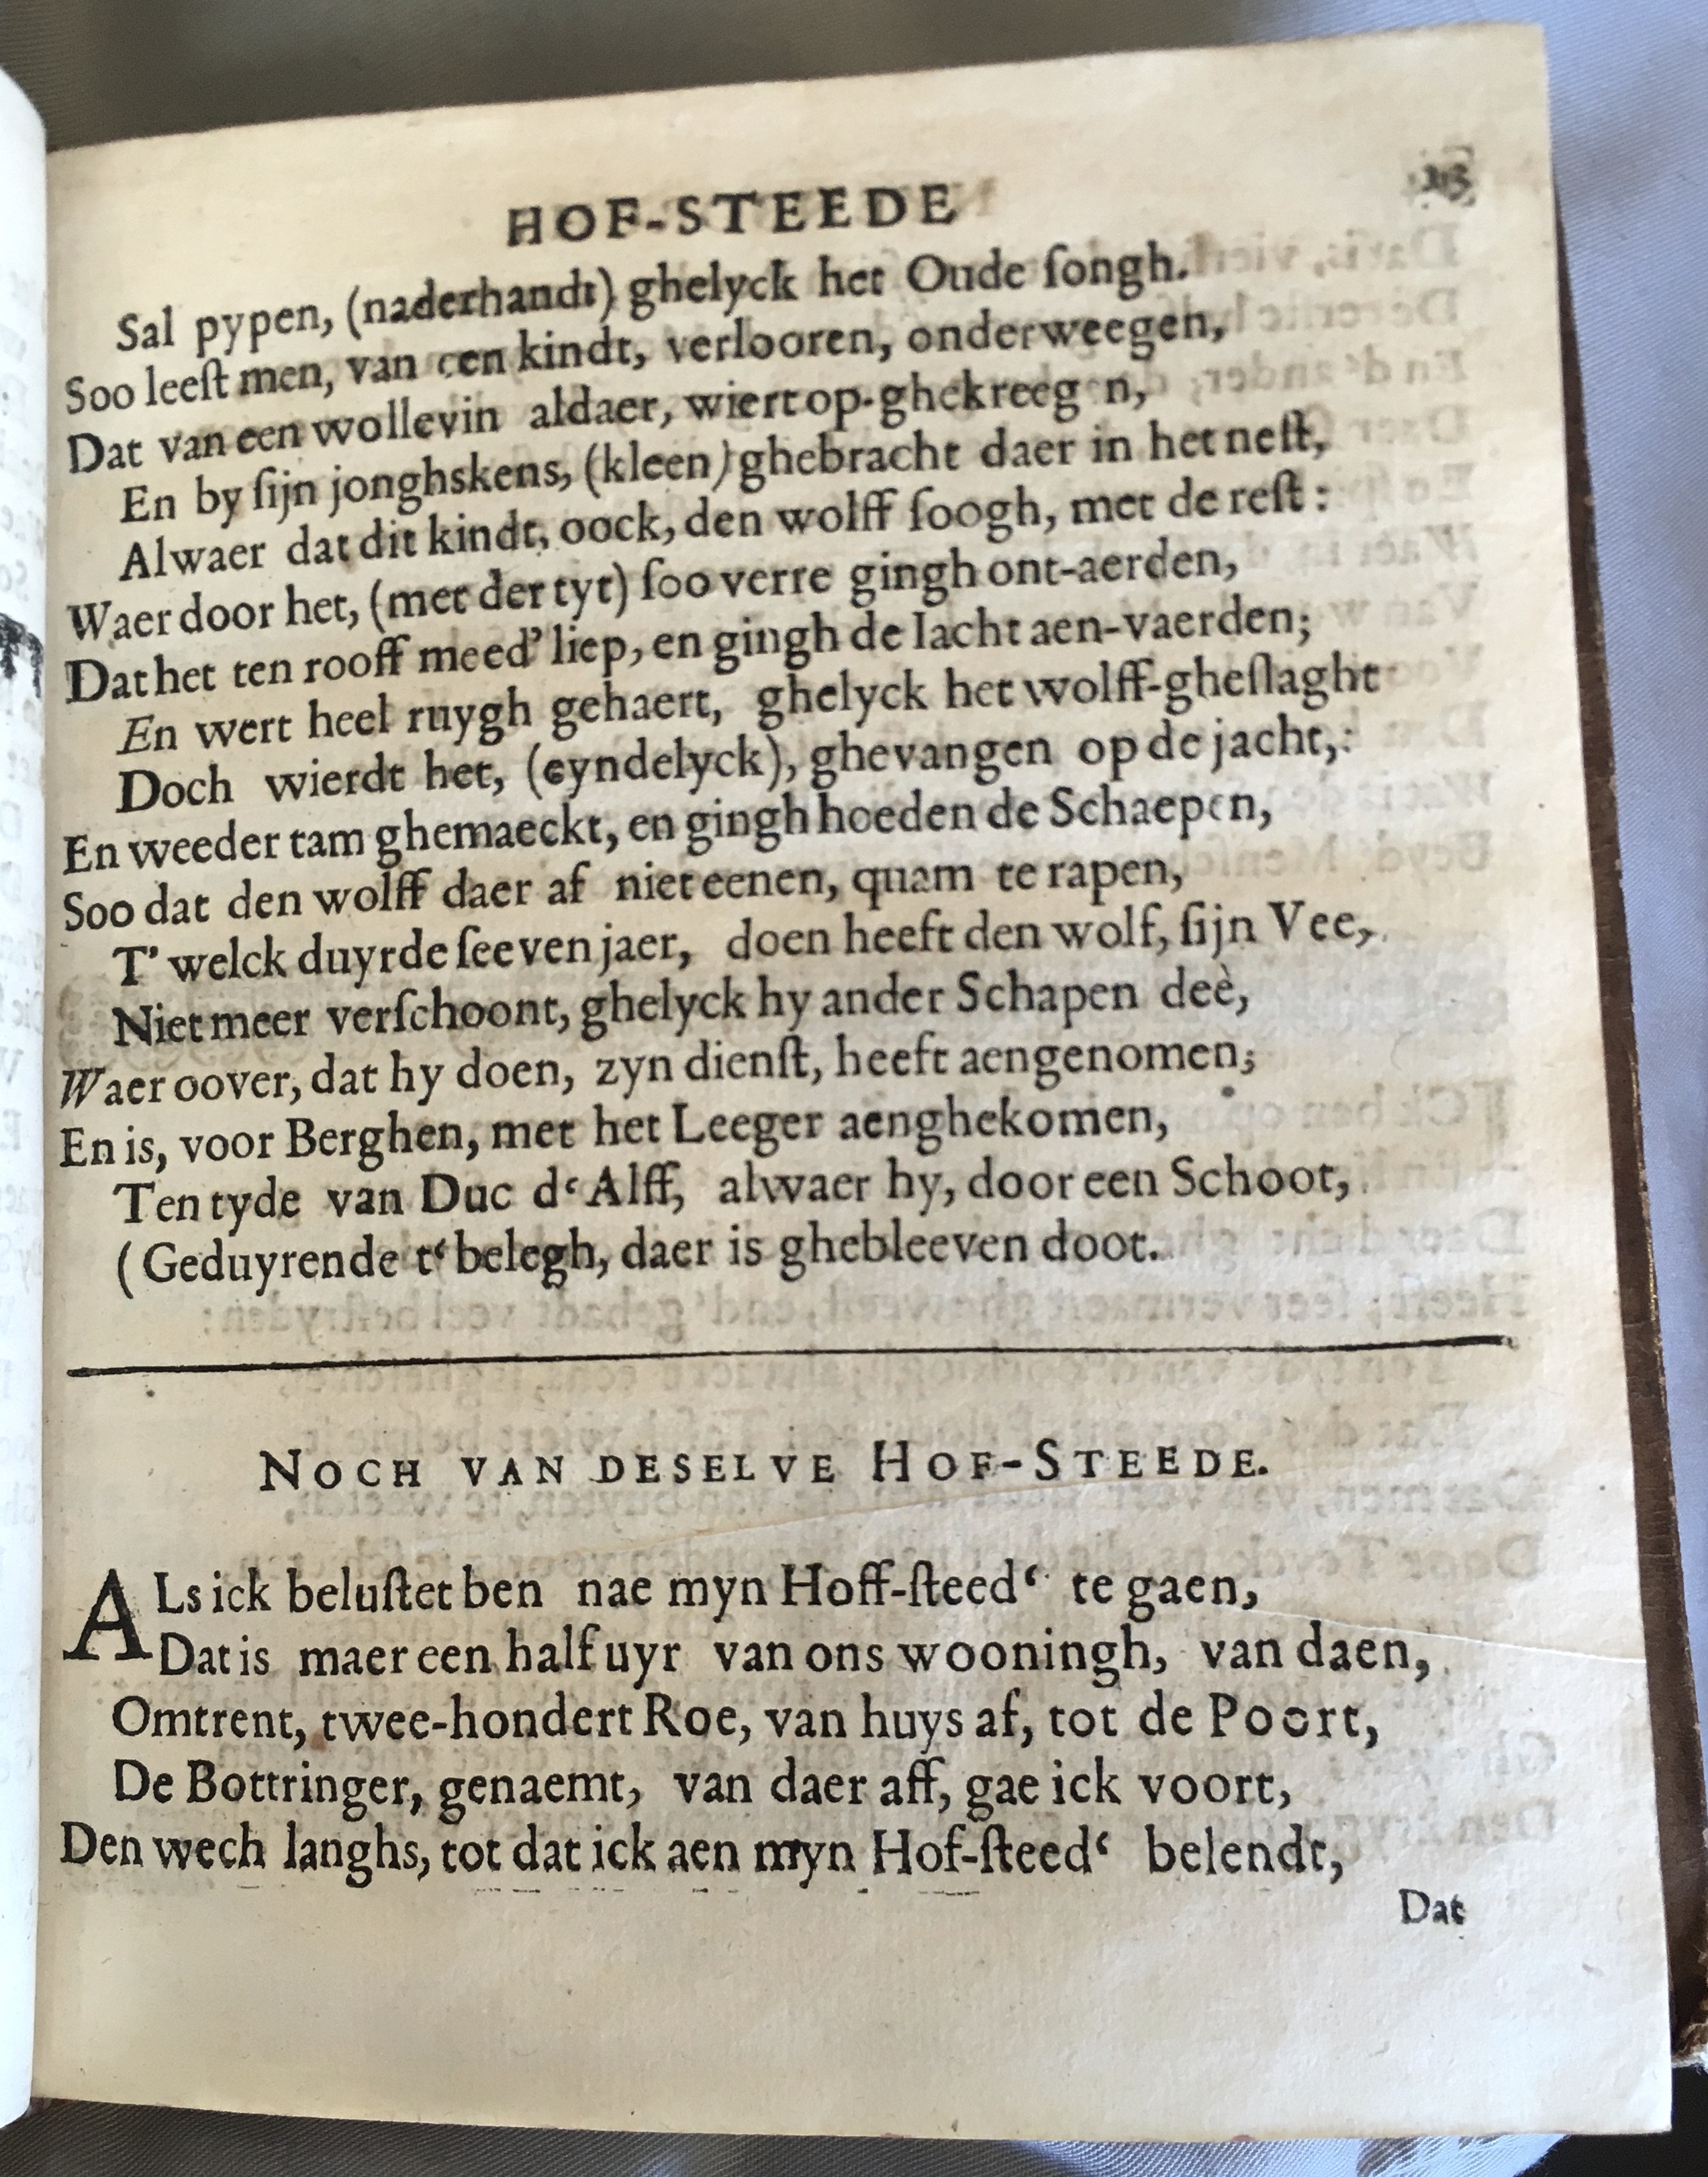 HOF-STEEDE
Sal pypen, (naderhandt) ghelyck het Oude ſongh.
Soo leeſt men, van een kindt, verlooren, onderweegen,
Dat van een wollevin aldaer, wiert op-ghekreeg n,
En by ſijn jonghskens, (kleen) ghebracht daer in het neſt,
Alwaer dat dit kindt, oock, den wolff ſoogh, met de reſt:
Waer door het, (met der tyt) ſoo verre gingh ont-aerden,
Dat het ten rooff meed’ liep, en gingh de Iacht aen-vaerden;
En wert heel ruygh gehaert, ghelyck het wolff-gheſlaght
Doch wierdt het, (eyndelyck), ghevangen op de jacht,:
En weeder tam ghemaeckt, en gingh hoeden de Schaepen,
Soo dat den wolff daer af niet eenen, quam te rapen,
T’ welck duyrde ſeeven jaer, doen heeft den wolf, ſijn Vee,
Niet meer verſchoont, ghelyck hy ander Schapen deè,
Waer oover, dat hy doen, zyn dienſt, heeft aengenomen;
En is, voor Berghen, met het Leeger aenghekomen,
Ten tyde van Duc d‘Alff, alwaer hy, door een Schoot,
(Geduyrende t‘belegh, daer is ghebleeven doot.
NOCH VAN DESELVE HOF-STEEDE.
ALs ick beluſtet ben nae myn Hoff-ſteed‘ te gaen,
Dat is maer een half uyr van ons wooningh, van daen,
Omtrent, twee-hondert Roe, van huys af, tot de Poort,
De Bottringer, genaemt, van daer aff, gae ick voort,
Den wech langhs, tot dat ick aen myn Hof-ſteed‘ belendt,
Dat